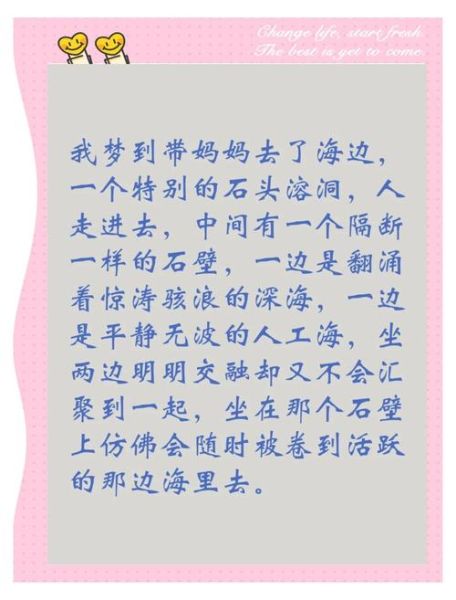 Change life, start fresh.
The best is yet to come.
我梦到带妈妈去了海边，
一个特别的石头溶洞，人
走进去，中间有一个隔断
一样的石壁，一边是翻涌
着惊涛骇浪的深海，一边
是平静无波的人工海，坐
两边明明交融却又不会汇
聚到一起，坐在那个石壁
上仿佛会随时被卷到活跃
的那边海里去。